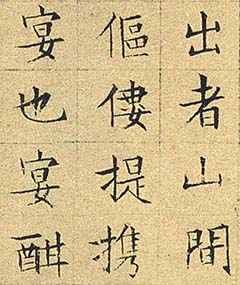 出者山間
傴僂提携
宴也宴酣